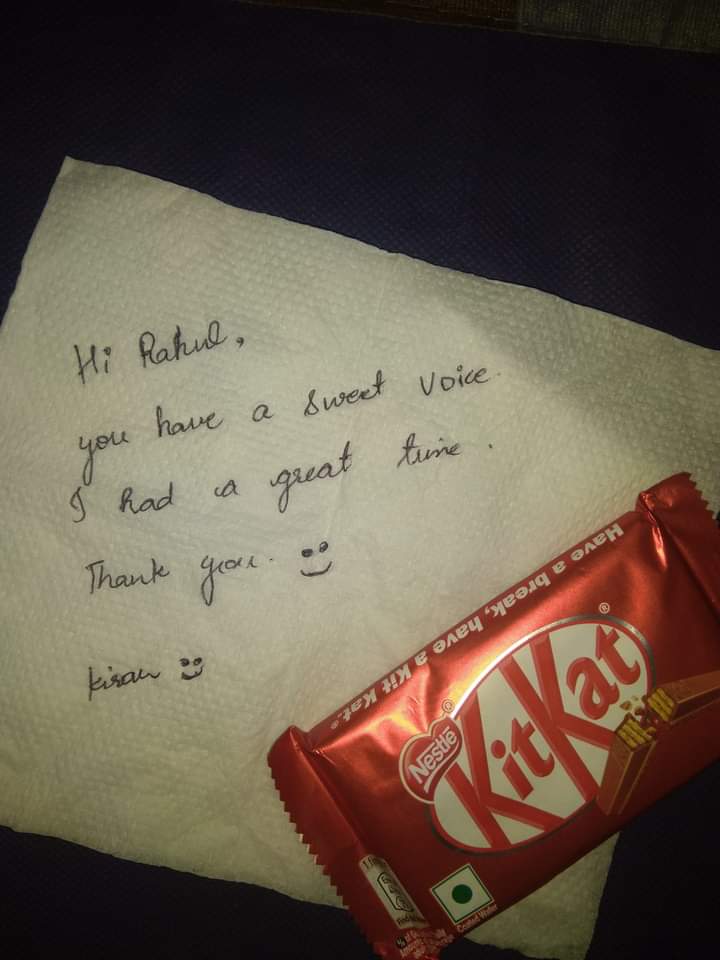 Hi Rahul,
you have a sweet voice.
I had a great time.
Thank you.
Kiran
Have a break, have a Kit Kat.®
Nestlé
KitKat®
Coated Wafer